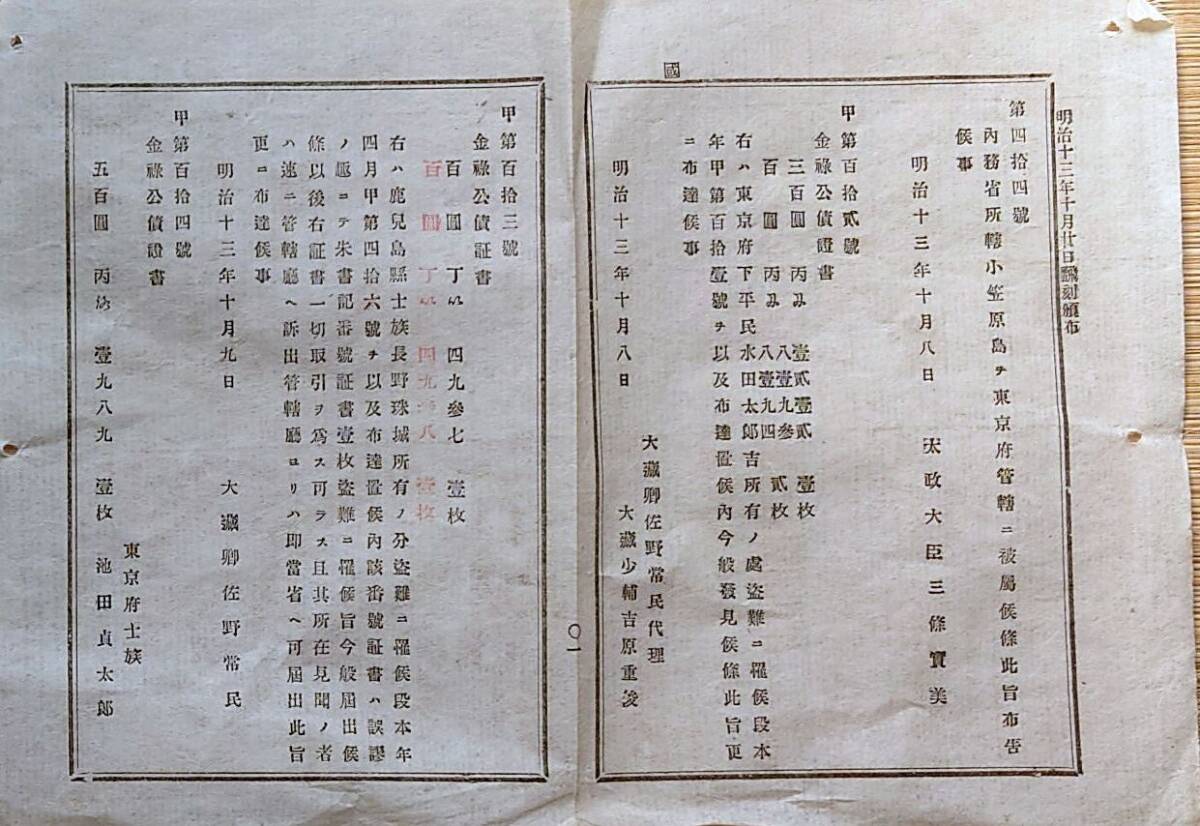 明治十三年十月廿日飜刻頒布
國
第四拾四號
內務省所轄小笠原島ヲ東京府管轄ニ被屬候條此旨布吿
候事
明治十三年十月八日
太政大臣三條實美
甲第百拾貳號
金祿公債證書
三百圓 丙 壹貳壹貳 壹枚
百圓 丙 八壹九參 八壹九四 貳枚
右ハ東京府下平民水田太郞吉所有ノ處盜難ニ罹候段本
年甲第百拾壹號ヲ以及布達置候內今般發見候條此旨更
ニ布達候事
明治十三年十月八日
大藏卿佐野常民代理
大藏少輔吉原重俊
〇一
甲第百拾三號
金祿公債証書
百圓 丁 四九參七 壹枚
百圓 丁 四九 八 壹枚
右ハ鹿兒島縣士族長野珠城所有ノ分盜難ニ罹候段本年
四月甲第四拾六號ヲ以及布達置候內該番號証書ハ誤謬
ノ趣ニテ朱書記番號証書壹枚盜難ニ罹候旨今般屆出候
條以後右証書一切取引ヲ爲ス可ラス且其所在見聞ノ者
ハ速ニ管轄廳ヘ訴出管轄廳ヨリハ卽當省ヘ可屆出此旨
更ニ布達候事
明治十三年十月九日
大藏卿佐野常民
甲第百拾四號
金祿公債證書
東京府士族
五百圓 丙 壹九八九 壹枚 池田貞太郞